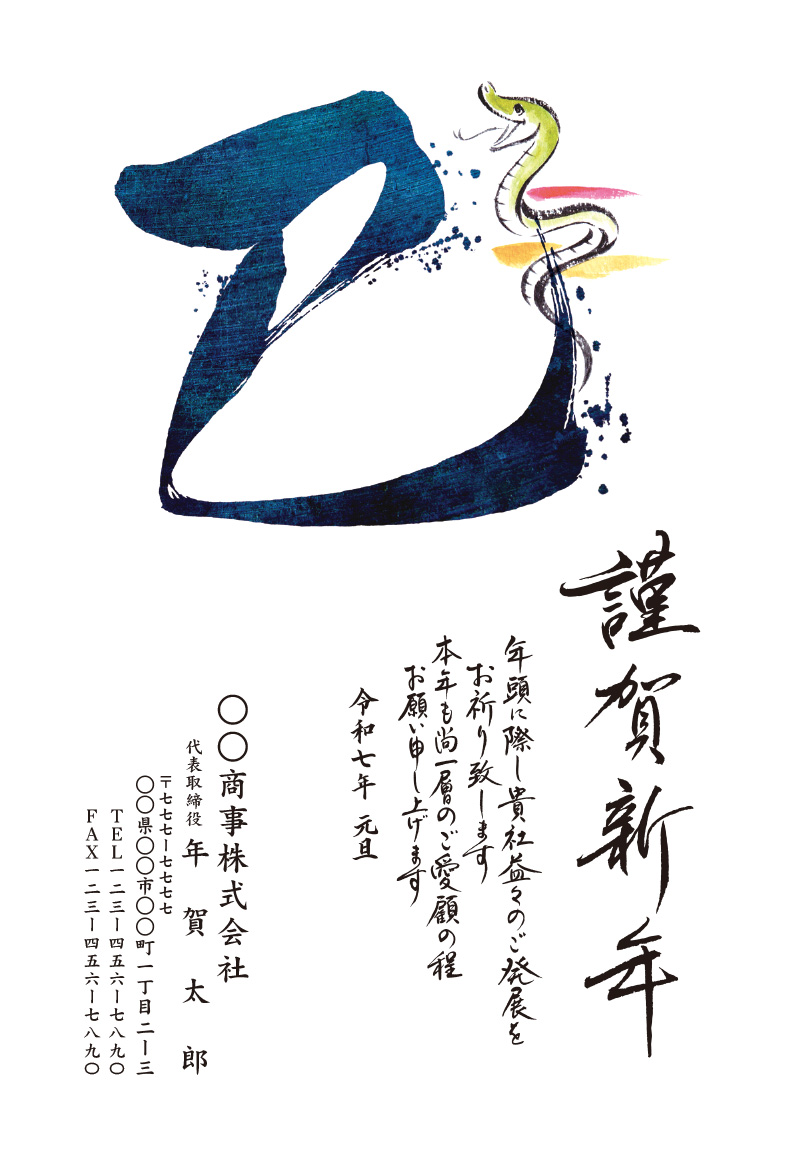 巳
謹賀新年
年頭に際し貴社益々のご発展を
お祈り致します
本年も尚一層のご愛顧の程
お願い申し上げます
令和七年 元旦
〇〇商事株式会社
代表取締役 年賀太郎
〒七七七ー七七七七
〇〇県〇〇市〇〇町一丁目二ー三
TEL一二三ー四五六ー七八九〇
FAX一二三ー四五六ー七八九〇